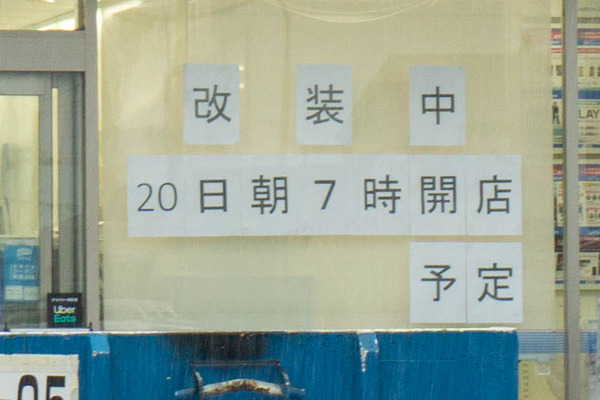 改装中
20日朝7時開店
予定
Uber
Eats
LAY
-05